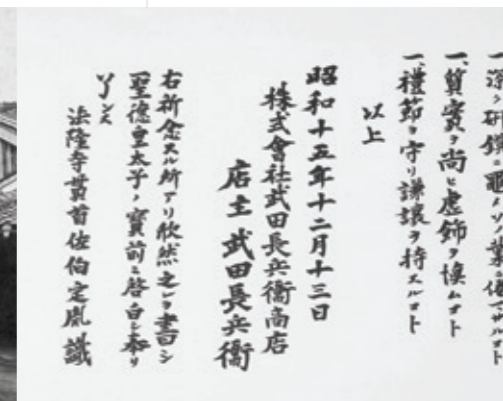 一、深ク研鑽ソノ業倦マザルコト
一、質實ヲ尚ヒ虚飾ヲ愼ムコト
一、禮節ヲ守リ謙讓ヲ持スルコト
以上
昭和十五年十二月十三日
株式會社武田長兵衞商店
店主 武田長兵衞
右祈念スル所アリ欣然之レヲ書シ
聖德皇太子ノ寶前ニ啓白シ奉リ
了ンヌ
法隆寺貫首佐伯定胤識